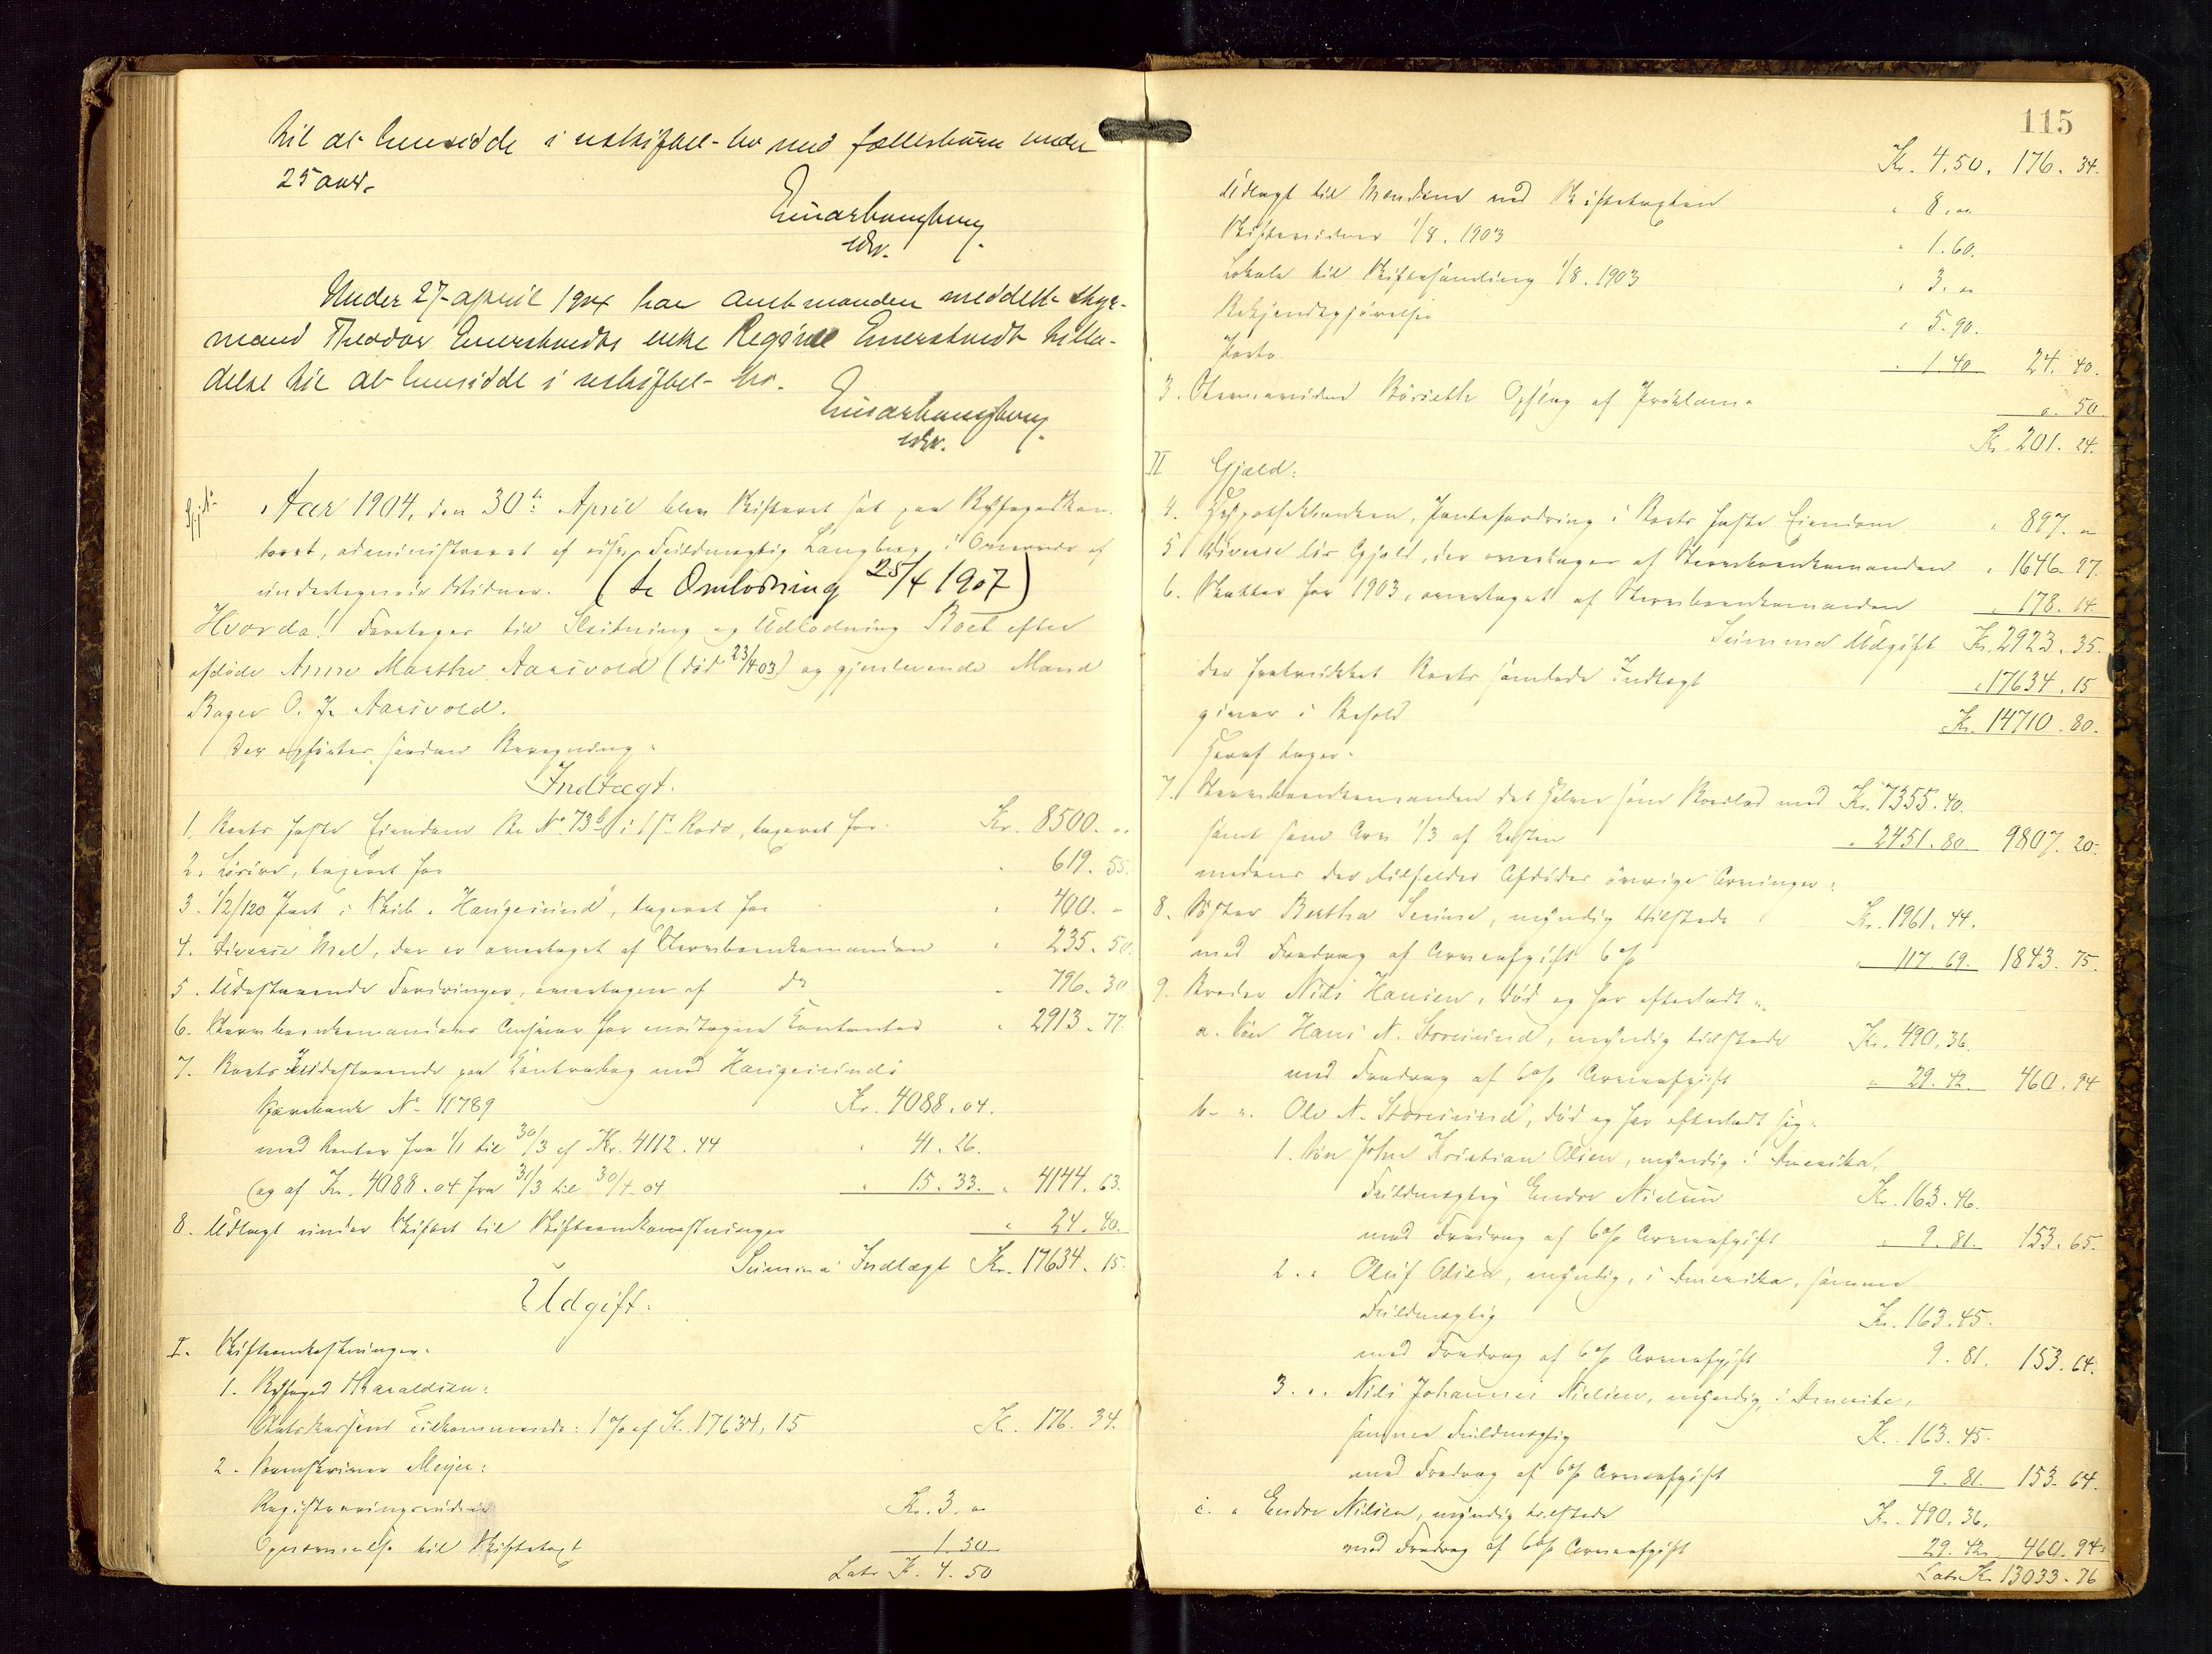 til at hensidde i uskiftet bo med fællesbarn under
25 aar.
Einar Langberg
edsv.
Under 27 april 1904 har amtmanden meddelt styr-
mand Theodor Emerstvedts enke Regine Emerstvedt tilla-
delse til at hensidde i uskiftet bo.
Einar Langberg
edsv.
Aar 1904, den 30te April blev Skifteret sat paa Byfogedkon-
toret, administreret af edsv. Fuldmægtig Langberg i Overvær af
undertegnede Vidner. (se Omlodning 25/4 1907)
Hvorda! Foretages til Slutning og Udlodning Boet efter
afdøde Anne Marthe Aarsvold (død 23/4 03) og gjenlevende Mand
Bager O. J. Aarsvold.
Der opførtes saadan Beregning:
Indtægt.
1. Boets faste Eiendom No 73b i 1ste Rode, taxeret for Kr. 8500. "
2. Løsøre, taxeret for " 619. 55.
3. 1/2/120 Part i Skib "Haugesund", taxeret for " 400. "
4. Diverse Mel, der er overtaget af Stervboenkemanden " 235. 50.
5. Udestaaende Fordringer, overtagen af do " 796. 30
6. Stervboenkemandens Ansvar for modtagne Kontanter " 2913. 77.
7. Boets Indestaaende paa Kontrabog med Haugesunds
Sparebank No 11789 Kr. 4088.04.
med Renter fra 1/1 til 30/3 af Kr. 4112.44 " 41.26.
(og af Kr. 4088.04 fra 31/3 til 30/4 04 " 15.33. " 4144. 63.
8. Udlagt under Skiftet til Skifteomkostninger " 24. 40.
Summa Indtægt Kr. 17634. 15.
Udgift.
I. Skifteomkostninger.
1. Byfoged Haraldsen:
Statskassens Tilkommende: 1 % af Kr. 17634, 15 Kr. 176. 34.
2. Sorenskriver Meyer:
Registreringsvidner Kr. 3. "
Opnævnelse til Skiftetaxt 1.50
Lats Kr. 4.50
115
Kr. 4.50. 176. 34.
Udlagt til Mændene ved Skiftetaxten " 8. "
Skiftevidner 1/8. 1903 " 1.60.
Lokale til Skiftesamling 1/8. 1903 " 3. "
Bekjendtgjørelse " 5.90.
Porto " 1.40 24. 40.
3. Opslag af Proklama ". 50
Kr. 201. 24.
II Gjæld:
4. Hypothekbanken, Pantefordring i Boets faste Eiendom " 897. "
5. Diverse løs Gjæld, der overtages af Stervboenkemanden " 1646. 97.
6. Skatter for 1903, overtaget af Stervboenkemanden " 178. 14.
Summa Udgift Kr. 2923. 35.
der fratrukket Boets samlede Indtægt " 17634. 15
giver i Behold Kr. 14710. 80.
Heraf tager:
7. Stervboenkemanden det halve som Boeslod med Kr. 7355.40.
samt som Arv 1/3 af Resten " 2451.80. 9807. 20.
medens der tilfalder Afdødes øvrige Arvinger:
8. Søster Bertha Serine, myndig tilstede Kr. 1961.44.
med Fradrag af Arveafgift 6 % " 117.69. 1843. 75.
9. Broder Nils Hansen, død og har efterladt:
a. Søn Hans N. Storesund, myndig tilstede Kr. 490.36.
med Fradrag af 6 % Arveafgift " 29.42. 460. 94
b. ". Ole N. Storesund, død og har efterladt sig:
1. Søn John Kristian Olsen, myndig i Amerika,
Fuldmægtig Endre Nielsen Kr. 163.46.
med Fradrag af 6 % Arveafgift " 9.81. 153. 65.
2. " Oluf Olsen, myndig, i Amerika, samme
Fuldmægtig Kr. 163.45.
med Fradrag af 6 % Arveafgift 9.81. 153. 64.
3. ". Nils Johannes Nielsen, myndig, i Amerika,
samme Fuldmægtig Kr. 163.45.
med Fradrag af 6 % Arveafgift 9.81. 153. 64.
c. " Endre Nilsen, myndig tilstede Kr. 490.36.
med Fradrag af 6 % Arveafgift 29.42. 460. 94.
Lats Kr. 13033. 76